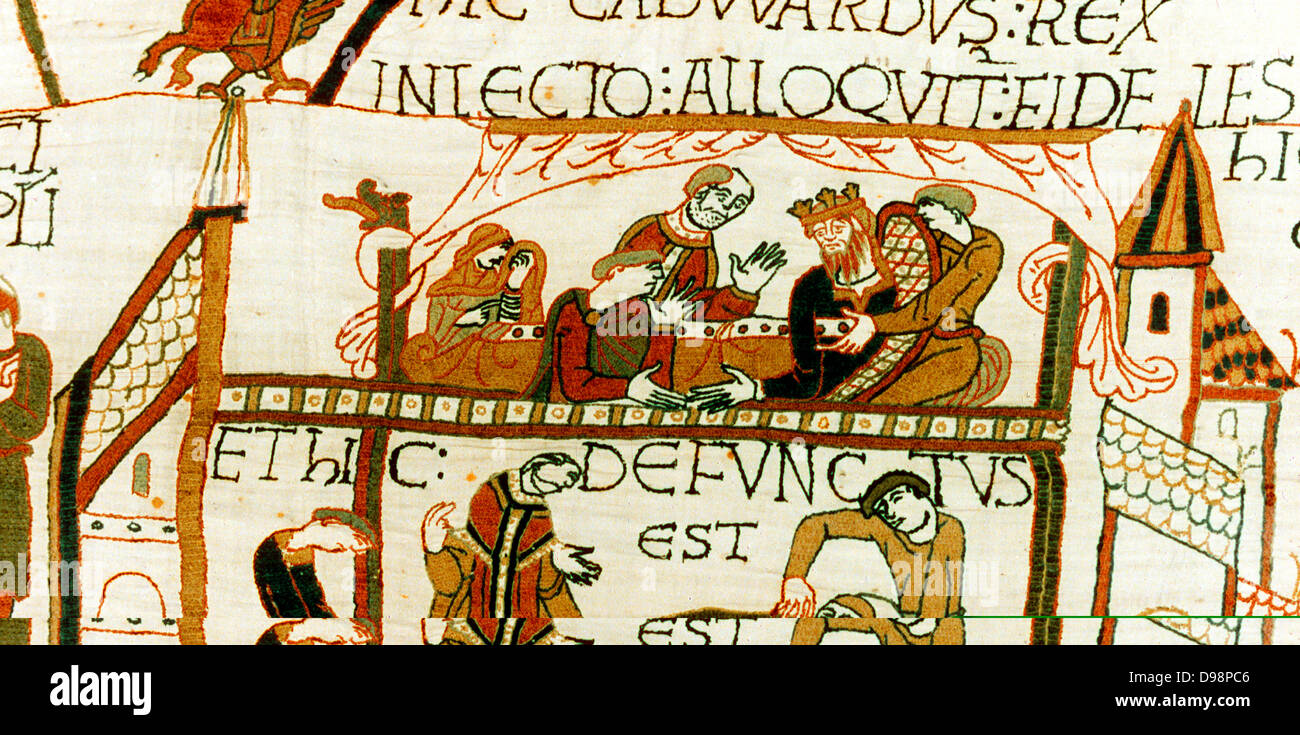 hIC EADVVARDVS : REX
INLECTO : ALLOQVIT : FIDE LES
hI
CI
PLI
ET hI C : DEFVNC TVS
EST
EST
alamy
Image ID: D98PC6
www.alamy.com